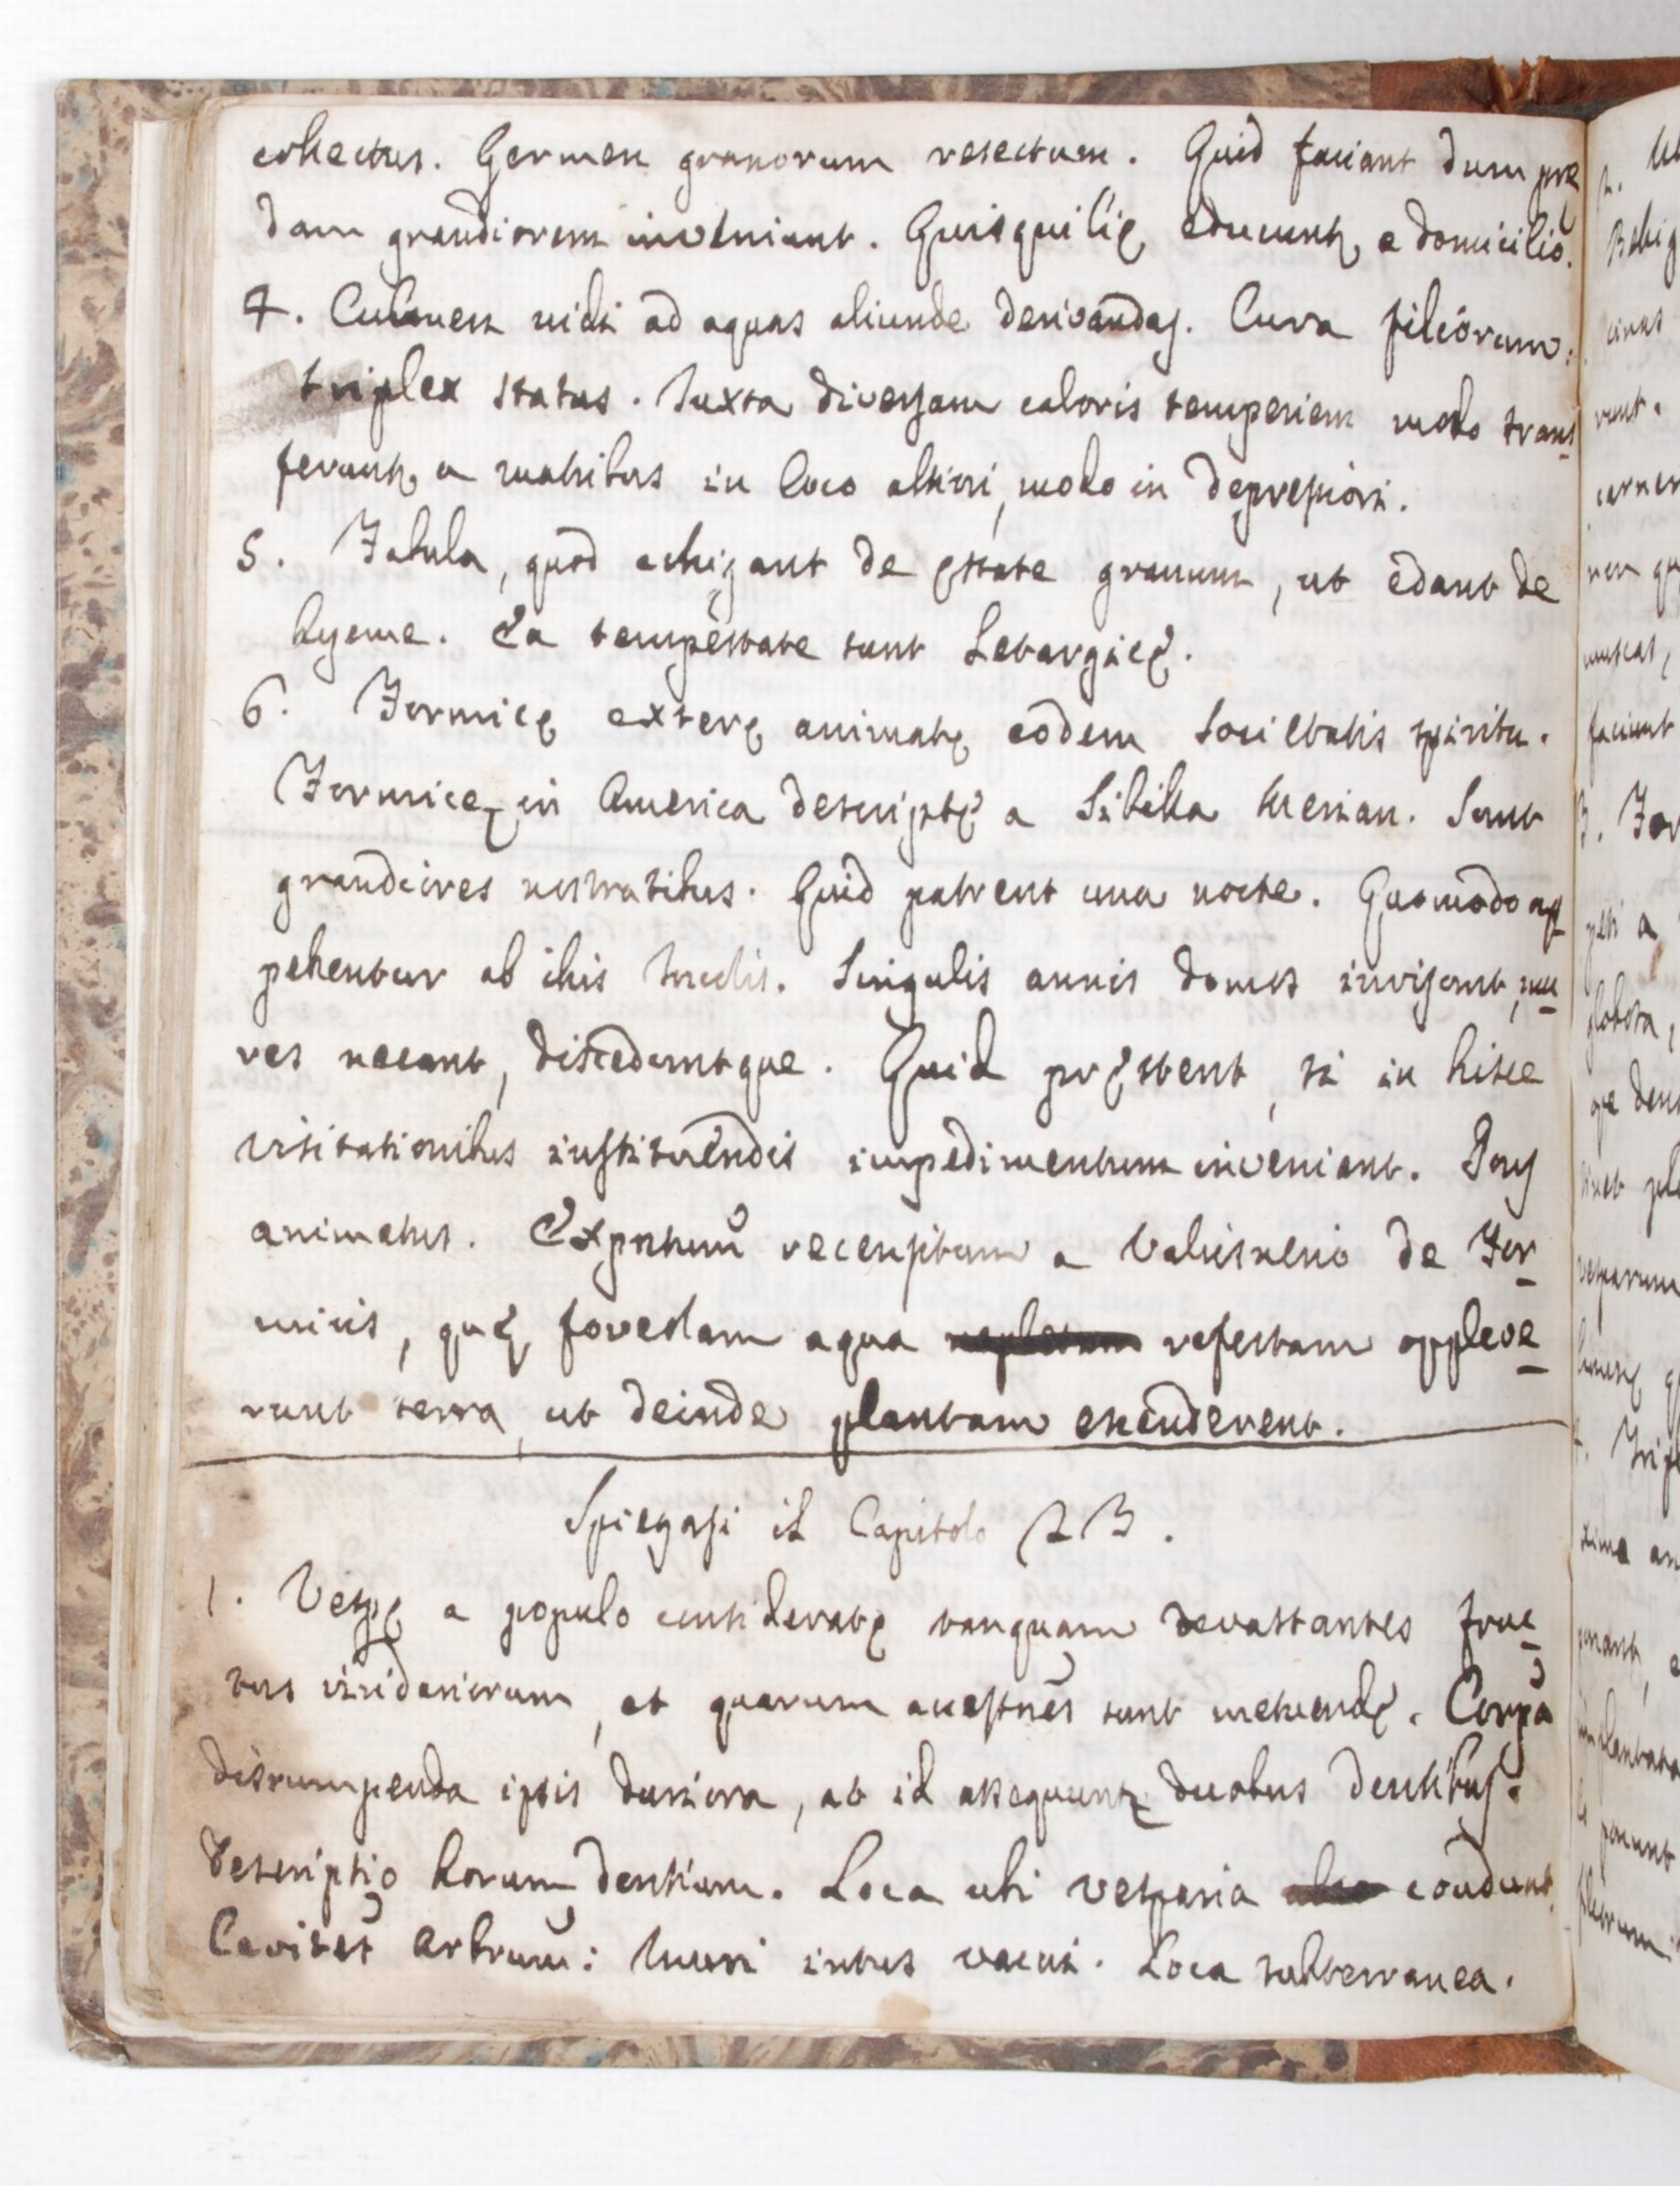 collectus. Germen granorum resectum. Quid faciant dum prę
dam grandiorem inveniunt. Quisquilię educuntꝛ e domicilio.
4. Culmen nidi ad aquas aliunde derivandas. Cura filiorum:
triplex status. Iuxta diversam caloris temperiem modo trans
feruntꝛ a matribus in loco altiori, modo in depressiori.
5. Fabula, quod colligant de ęstate granum, ut edant de
hyeme. Ea tempestate sunt Letargicę.
6. Formicę exterę animatę eodem Societatis spiritu.
Formicę in America descriptę a Sibilla Merian. Sunt
grandiores nostratibus. Quid patrent una nocte. Quomodo ap
pellentur ab illis Incolis. Singulis annis domos invisunt, mu
res necant, disceduntque. Quid pręstent, si in hisce
visitationibus instituendis impedimentum inveniant. Pons
animatus. Exptum recensitum a Valisnerio de For
micis, quę foveolam aqua repletam refertam oppleve
runt terra, ut deinde plantam escenderent.
Spiegasi il Capitolo 23.
1. Vespę a populo consideratę tanquam devastantes fruc
tus viridariorum, et quarum acestres sunt metuendę. Corpa
disrumpenda ipsis duriora, at id assequuntꝛ duobus dentibus.
Descriptio horum dentium. Loca ubi vesparia condunt.
Cavitet arbrum: Muri intus vacui. Loca subterranea.